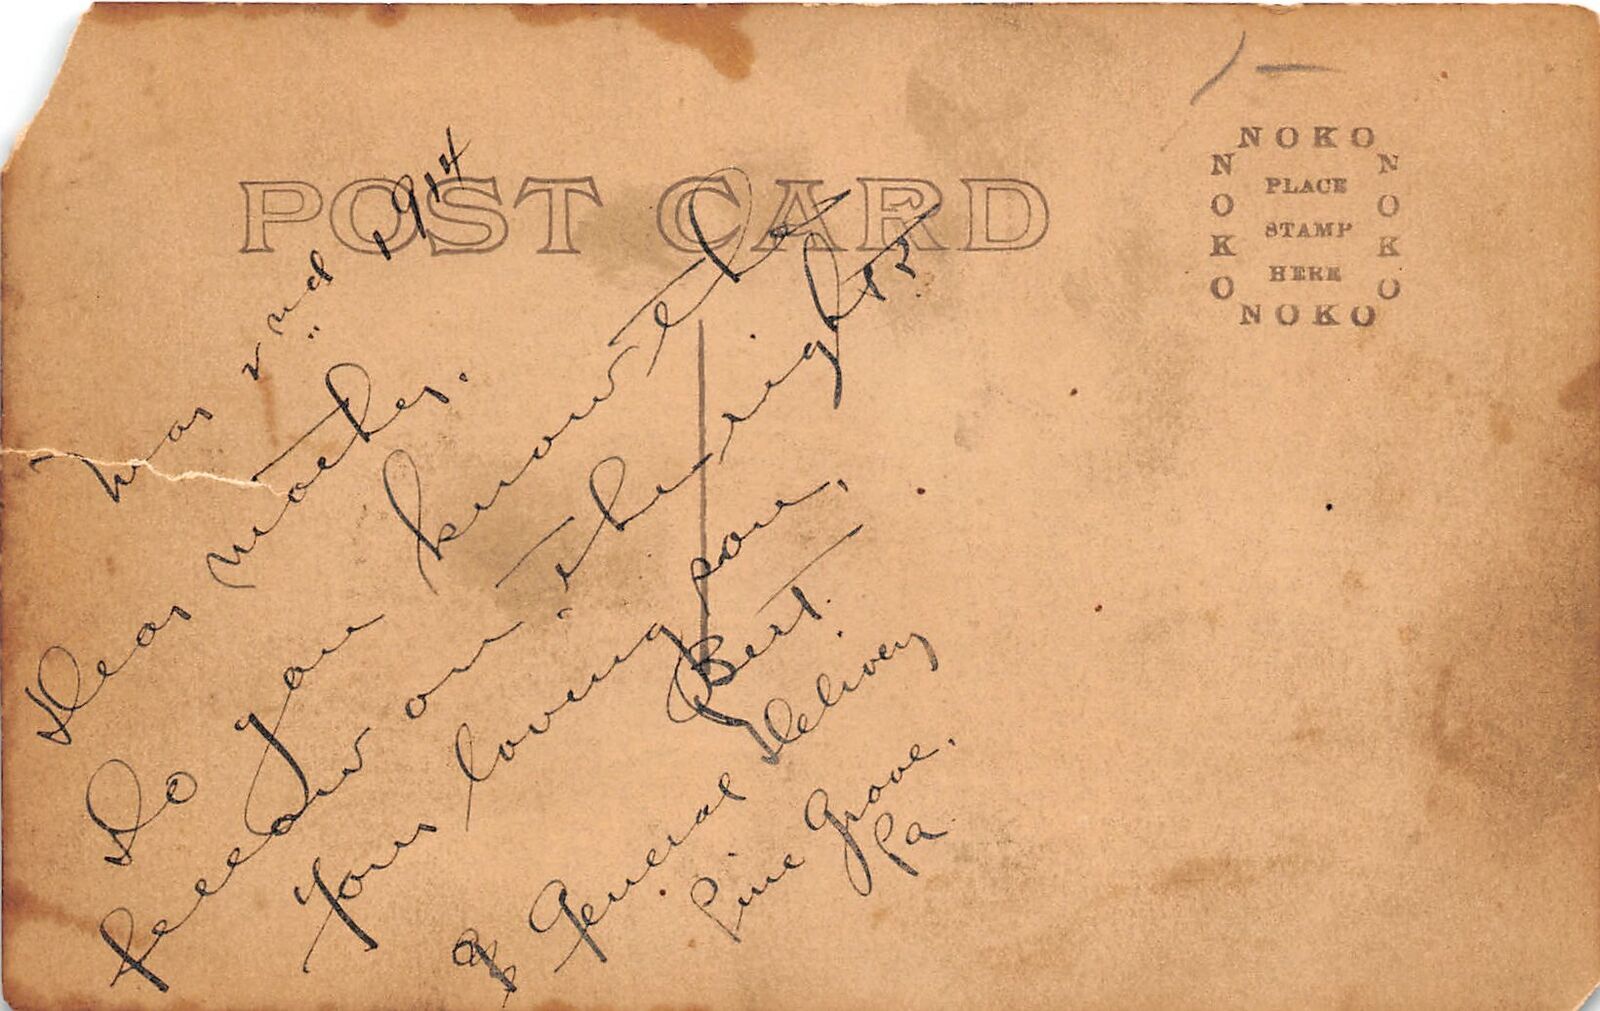 POST CARD
NOKO
NOKO
NOKO
NOKO
PLACE
STAMP
HERE
Mar 2nd 1914
Dear Mother.
Do you know the
fellow on the right?
Your loving son,
Bert.
% General Delivery
Pine Grove.
Pa